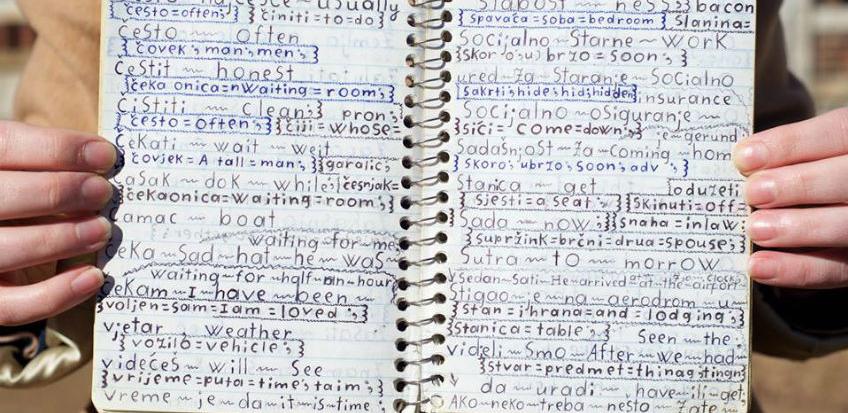 često=often;} činiti=to=do}
česTo ~ often
{čovek; man; men; }
čestiT ~ honest
{čeka onica=nWaiting=room;}
čiStiti ~ clean;} pron;
{česTo=often;} {čiji=whose=
čekati ~ wait ~ weit
{čovjek=A tall=man;} {garalic;
časak ~ dok ~ while;{češnjak=
{čekaonica=waiting=room;}
čamac ~ boat
waiting-for-me
čeka-Sad-hat-he-was
waiting-for-half-an-hour
čekam-I-have-been
{voljen=sam=Iam=loved;}
vjetar weather
{vozilo=vehicle;}
videćeš ~ will ~ see
{vrijeme=puta=time; taim;}
vreme ~ je ~ da ~ it ~ is ~ time
bacon
{spavaća=soba=bedroom} {Slanina=
Socijalno ~ Starne ~ WorK
brzo=soon;}
ured ~ za ~ Staranje ~ Socialno
{sakrti;hide;hid;hidden} insurance
Socijalno ~ oSiguranje ~
{sići= come=down;} gerund
Sadašnjost ~ za ~ coming ~ hom
{skoro; ubrzo; soon; adv ;}
Stanica ~ get {oduzeti
{sjesti=a seat ;} {Skinuti=off=
Sada ~ now;{Snaha=inlaw;
{supržink=brčni=drua=spouse;}
Sutra ~ to ~ morrow
Vsedan-Sati-He-arrived-at-the-airport-
Stigao ~ je ~ na ~ aerodrom ~ u
{Stan=ijhrana=and=lodging;}
{Stanica=table;} Seen ~ the
videli ~ Smo ~ After ~ we ~ had
{Stvar=predmet=thing
da ~ uradi ~ have
AKo-neko-treba-nešto